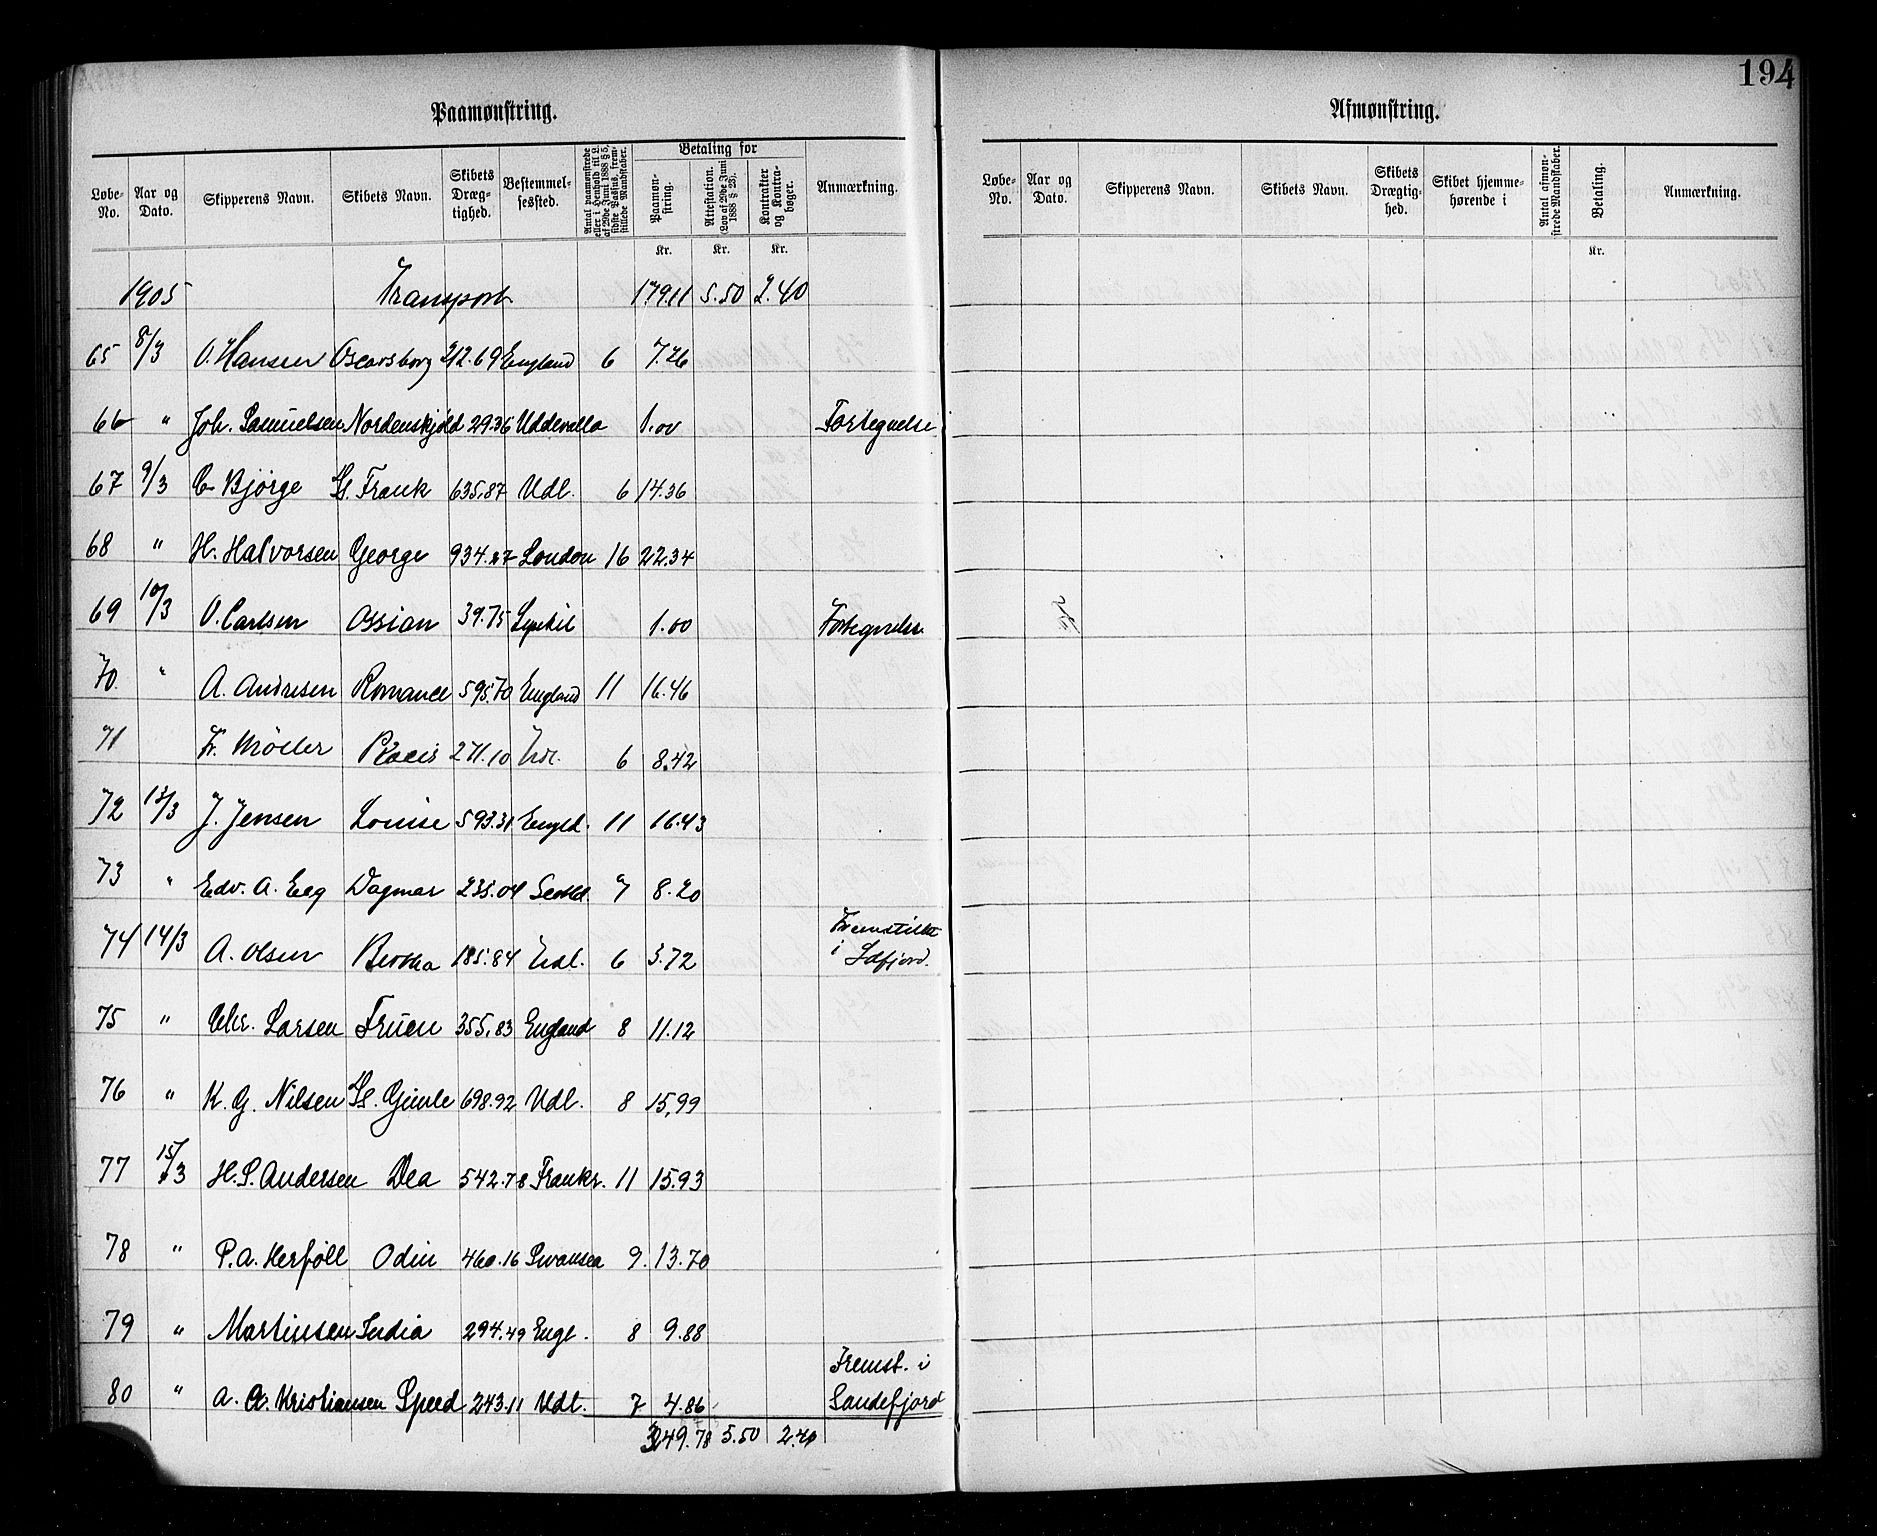 194
Paamønstring.
Løbe-No. Aar og Dato. Skipperens Navn. Skibets Navn. Skibets Dræg-tighed. Bestemmel-sessted. Antal paamønstrede eller i Henhold til L. af 29de Juni 1888 § 5, sidste Passus, frem-stillede Mandstaber. Betaling for Paamøn-string. Attestation. (Lov af 29de Juni 1888 § 23). Kontrakter og Kontra-bøger. Anmærkning.
Kr. Kr. Kr.
1905 Transport 179.11 5.50 2.40
65 8/3 O. Hansen Oscarsborg 212.69 England 6 7.26
66 " Joh. Samuelsen Nordenskjöld 29.36 Uddevalla 1.00 Fortegnelse
67 9/3 C. Bjørge Ss. Frank 635.87 Udl. 6 14.36
68 " H. Halvorsen George 934.27 London 16 22.34
69 10/3 O. Carlsen Ossian 39.75 Lysekil 1.00 Fortegnelse
70. " A. Andresen Romance 595.70 England 11 16.46
71 Fr. Møller 271.10 Udl. 6 8.42
72 13/3 J. Jensen Louise 593.31 Engld. 11 16.43
73 " Edv. A. Eeg Dagmar 235.04 Scotld. 7 8.20
74 14/3 A. Olsen Bertha 185.84 Udl. 6 3.72 Fremstillet
i Sdfjord.
75 " Chr. Larsen Fruen 355.83 England 8 11.12
76 " K. G. Nilsen Ss. Gimle 698.92 Udl. 8 15,99
77 15/3 H. S. Andersen Dea 542.78 Frankr. 11 15.93
78 " P. A. Herföll Odin 460.16 Swansea 9. 13.70
79 " Martinsen India 294.49 Engl. 8 9.88
80 " A. Kristiansen Speed 243.11 Udl. 7 4.86 Fremst. i
Sandefjord
349.78 5.50 2.40
Afmønstring.
Løbe-No. Aar og Dato. Skipperens Navn. Skibets Navn. Skibets Drægtig-hed. Skibet hjemme-hørende i Antal afmøn-strede Mandstaber. Betaling. Anmærkning.
Kr.